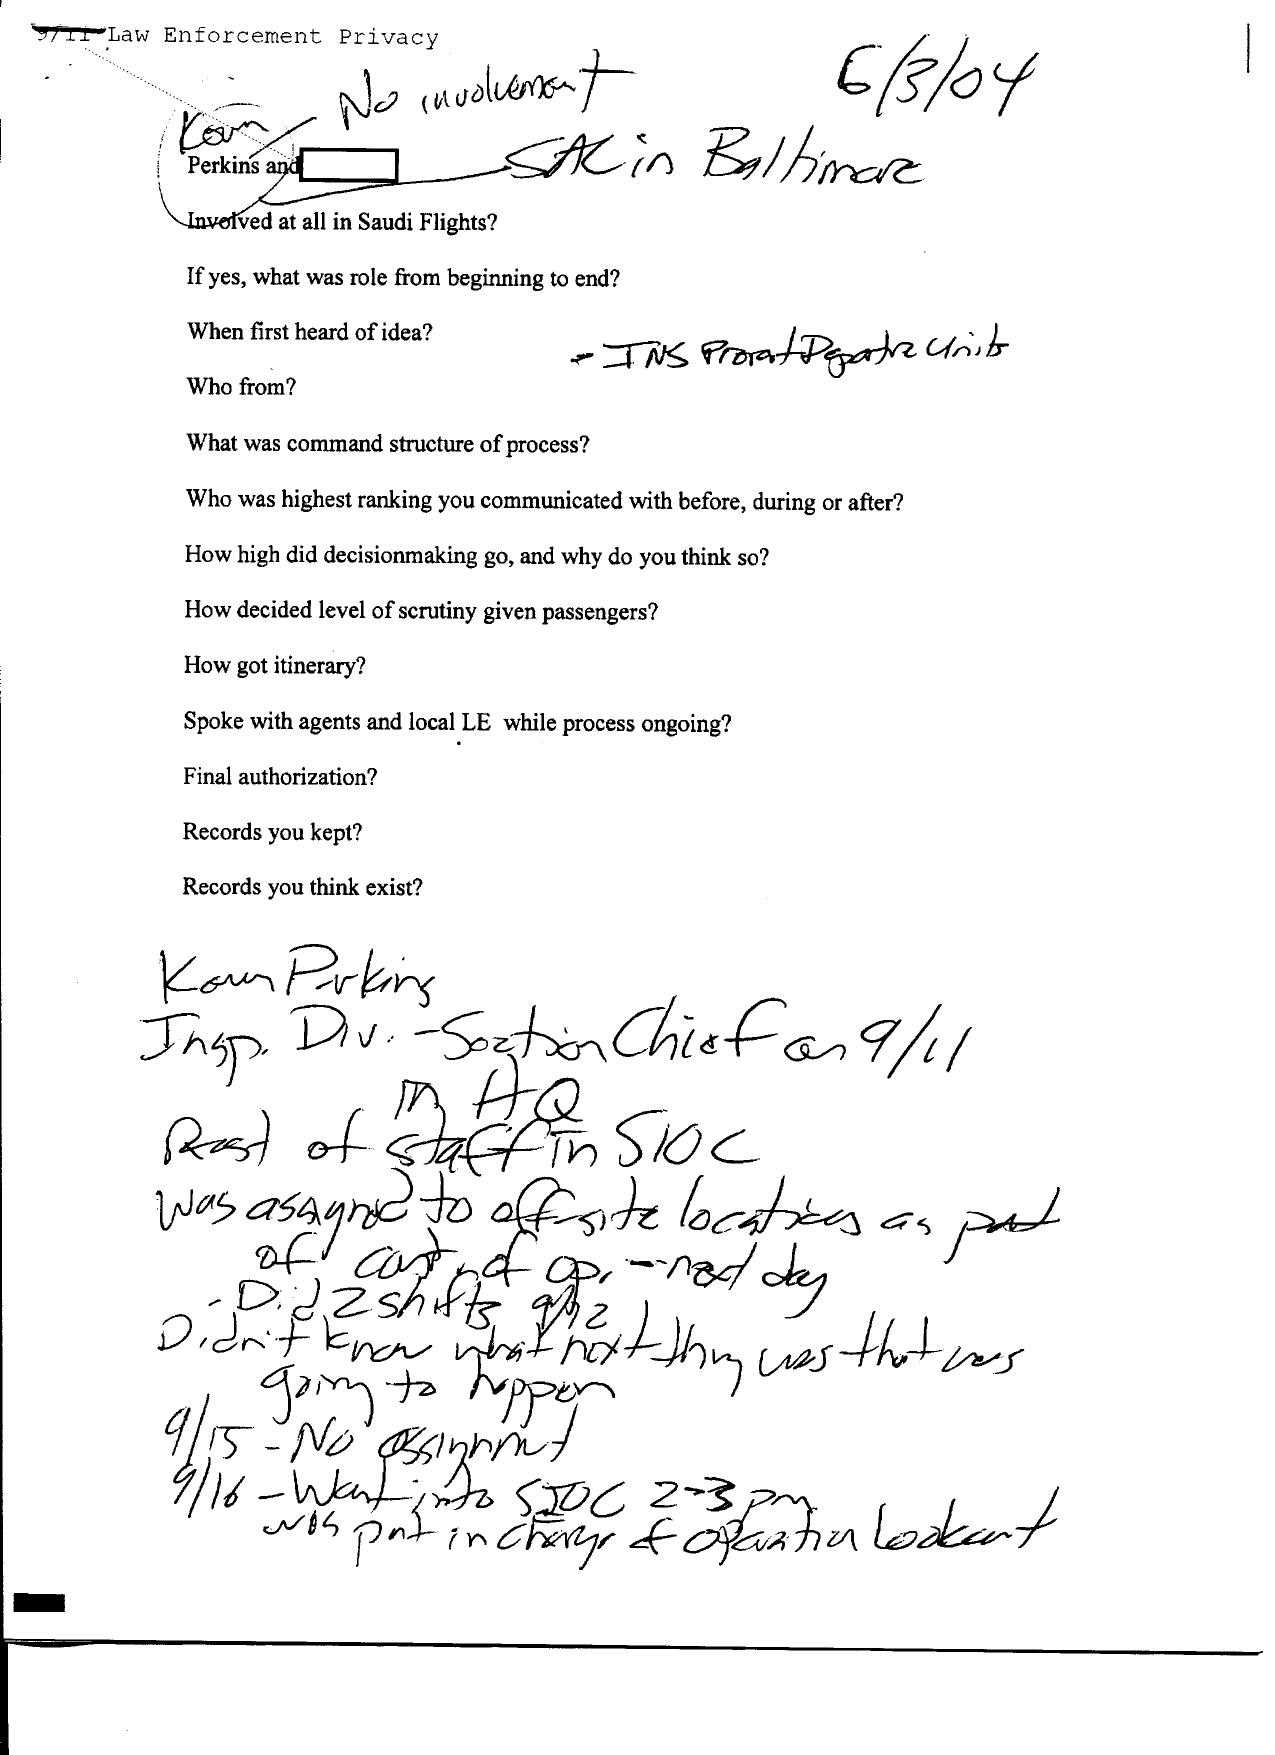 9/11 Law Enforcement Privacy
6/3/04
No involvement
Kevin
Perkins and
SAC in Baltimore
Involved at all in Saudi Flights?
If yes, what was role from beginning to end?
When first heard of idea?
- INS Units
Who from?
What was command structure of process?
Who was highest ranking you communicated with before, during or after?
How high did decisionmaking go, and why do you think so?
How decided level of scrutiny given passengers?
How got itinerary?
Spoke with agents and local LE while process ongoing?
Final authorization?
Records you kept?
Records you think exist?
Kevin Perkins
Insp. Div. - Section Chief on 9/11
in HQ
Rest of staff in SIOC
Was assigned to off-site locations as part
of cont. of op. - next day
- Did 2 shifts 9/12
Didn't know what next thing was that was
going to happen
9/15 - No assignment
9/16 - Went into SIOC 2-3 pm
was put in charge of operation lookout